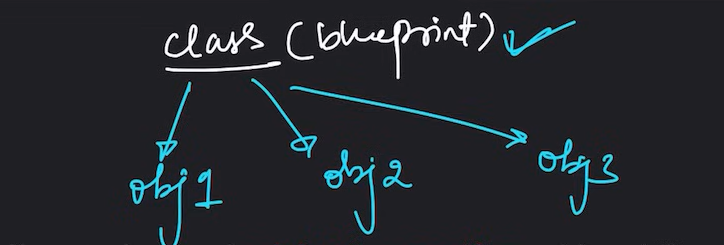 class (blueprint)
obj1 obj2 obj3